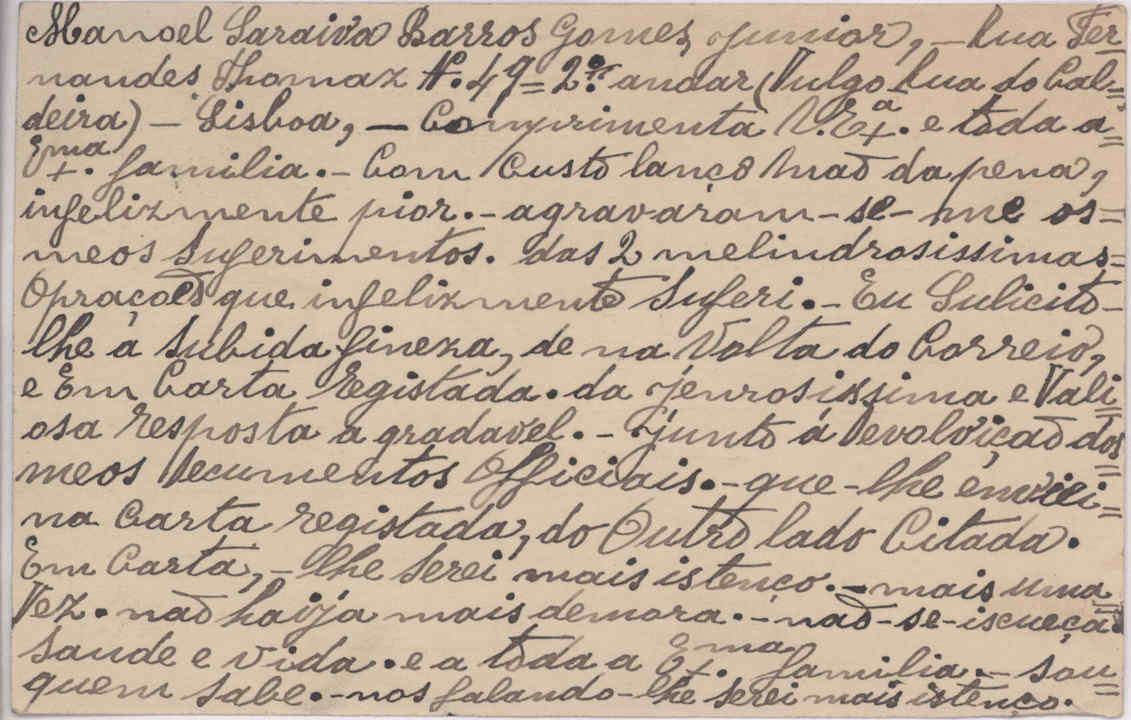 Manoel Saraiva Barros Gomes, junior, – Rua Fer=
nandes Thomaz Nº. 49 = 2º. andar (Vulgo Rua do Cal=
deira) – Lisboa, – Comprimenta V. Exª. e toda a=
Exma. familia. – Com custo lanço mão da pena,
infelizmente pior. – agravaram-se-me os=
meos suferimentos. das 2 melindrosissimas=
Opraçoês que infelizmente suferi. – Eu Sulicito-
lhe a subida fineza, de na Volta do Correio,
e Em Carta registada. da jenrosissima e Vali=
osa resposta agradavel. – junto á Devoloiçaõ dos=
meos Decumentos Officiais. – que-lhe enviei=
na Carta registada, do Outro lado Citada.
Em Carta, – lhe serei mais istenço. – mais uma=
Vez. naõ haija mais demora. – naõ-se-iscueça.
Saude e vida. e a toda a Exma. familia. – sou=
quem sabe. – nos falando-lhe serei mais istenço.